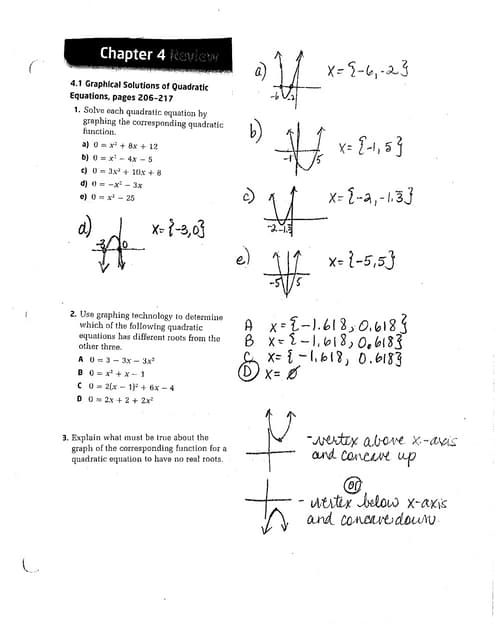 Chapter 4 Review
4.1 Graphical Solutions of Quadratic
Equations, pages 206–217
1. Solve each quadratic equation by
graphing the corresponding quadratic
function.
a) 0 = x² + 8x + 12
b) 0 = x² − 4x − 5
c) 0 = 3x² + 10x + 8
d) 0 = −x² − 3x
e) 0 = x² − 25
a) -6 -2 x = {-6, -2}
b) -1 5 x = {-1, 5}
c) -2 -1.3 x = {-2, -1.3}
d) -3 0 x = {-3, 0}
e) -5 5 x = {-5, 5}
2. Use graphing technology to determine
which of the following quadratic
equations has different roots from the
other three.
A 0 = 3 − 3x − 3x²
B 0 = x² + x − 1
C 0 = 2(x − 1)² + 6x − 4
D 0 = 2x + 2 + 2x²
A x = {-1.618, 0.618}
B x = {-1.618, 0.618}
C x = {-1.618, 0.618}
D x = ∅
3. Explain what must be true about the
graph of the corresponding function for a
quadratic equation to have no real roots.
- vertex above x-axis
and concave up
OR
- vertex below x-axis
and concave down.